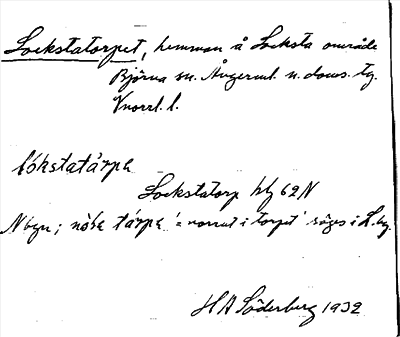 Lockstatorpet, hemman å Locksta område
Björna sn. Ångerml. n. doms. tg.
Vnorrl. l.
lókstatàrpa
Lockstatorp hfg 62 N
N byn; nòba tárpa '= norrut i torpet' säges i L. by.
H A Söderberg 1932